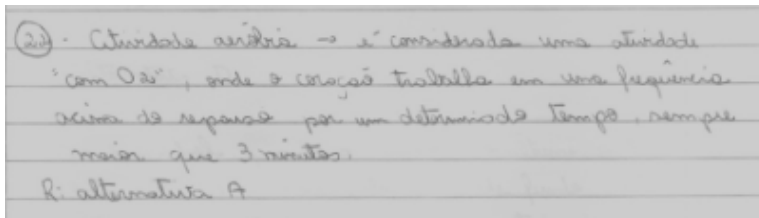 22. Atividade aeróbia → é considerada uma atividade
"com O2", onde o coração trabalha em uma frequência
acima do repouso por um determinado tempo, sempre
maior que 3 minutos.
R: alternativa A